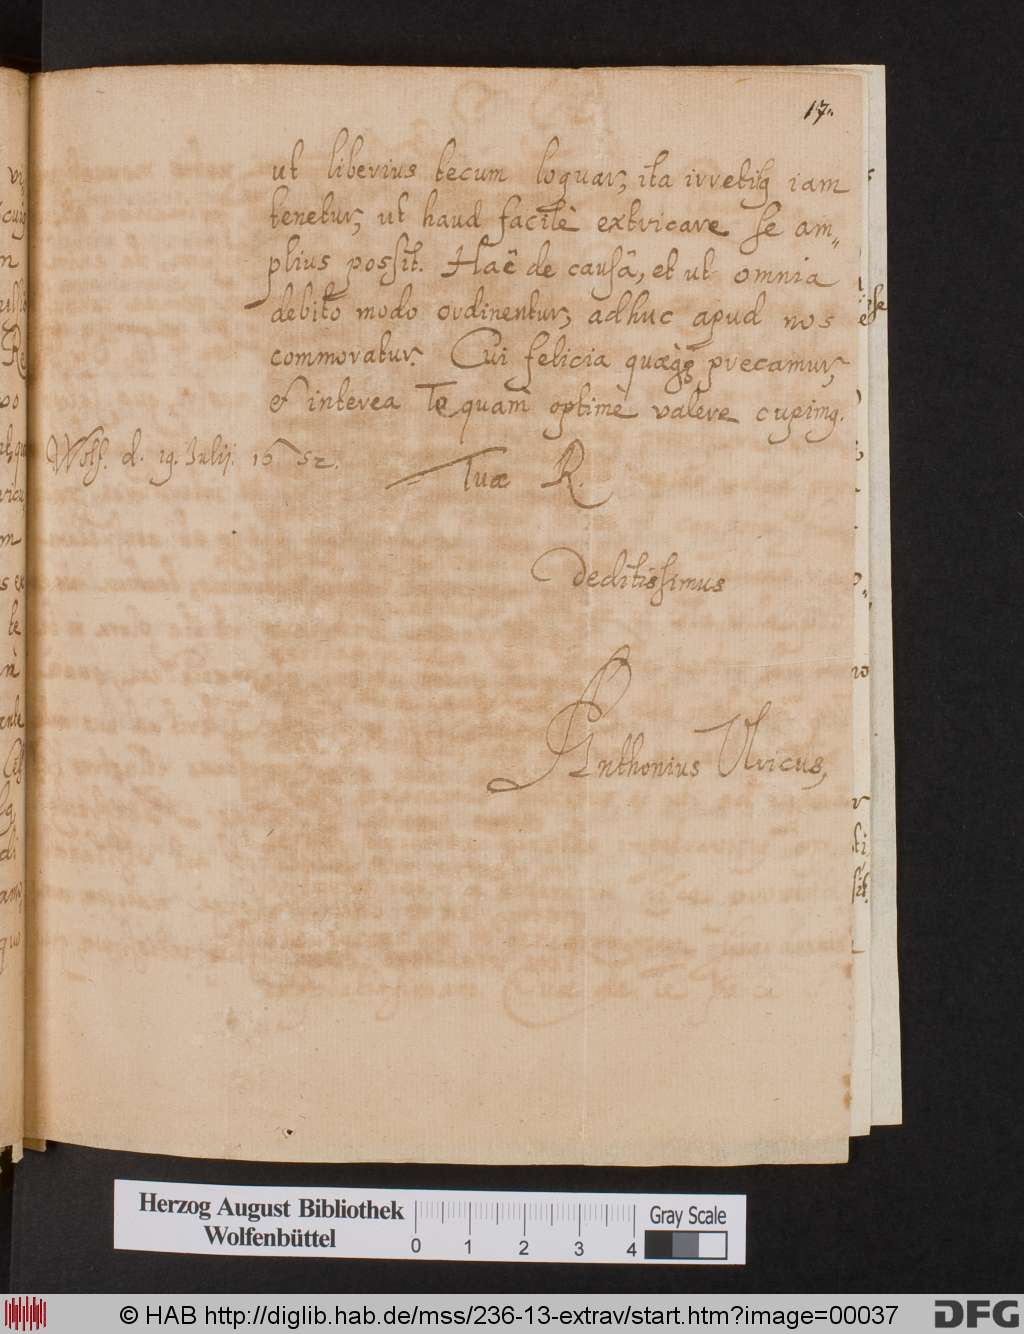 17.
ut liberius tecum loquar, ita irretitq iam
tenetur, ut haud facilè extricare se am„
plius possit. Hac de causâ, et ut omnia
debito modo ordinentur, adhuc apud nos
commoratur. Cui felicia quæq precamur,
et interea Te quam optimè valere cupimq.
Wolf. d. 19. Julij. 1652.
Tuæ R.
Deditissimus
Anthonius Ulricus,
Herzog August Bibliothek
Wolfenbüttel
0 1 2 3 4
Gray Scale
© HAB http://diglib.hab.de/mss/236-13-extrav/start.htm?image=00037
DFG